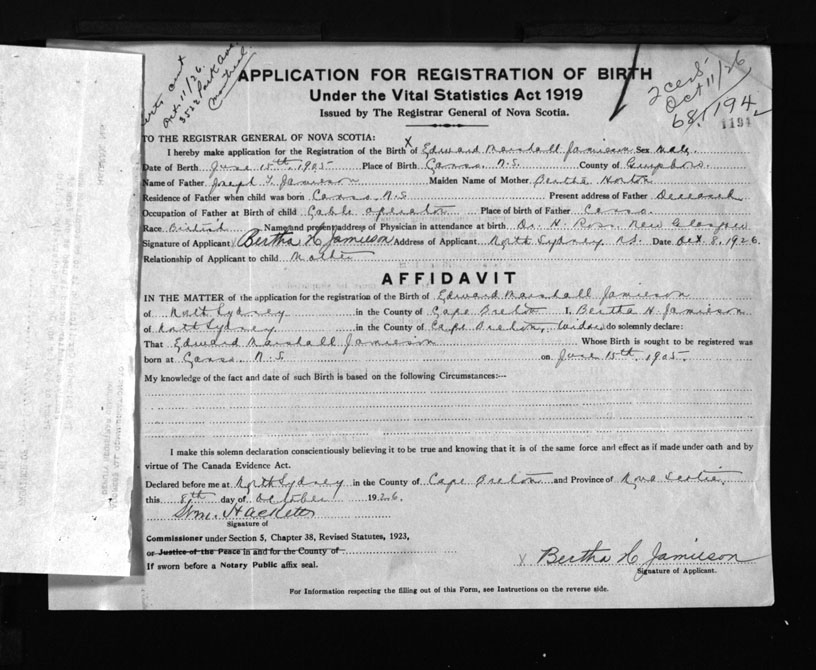 Oct. 11/26.
3522 Park Ave
Montreal
2 cert
Oct 11/26
68 1194
1194
APPLICATION FOR REGISTRATION OF BIRTH
Under the Vital Statistics Act 1919
Issued by The Registrar General of Nova Scotia.
TO THE REGISTRAR GENERAL OF NOVA SCOTIA:
I hereby make application for the Registration of the Birth of Edward Marshall Jamieson Sex Male
Date of Berth June 15th, 1905 Place of Birth Canso. N.S. County of Guysboro.
Name of Father Joseph Jamieson Maiden Name of Mother Bertha Horton
Residence of Father when child was born Canso, N.S Present address of Father Deceased
Occupation of Father at Birth of child Cable operator Place of birth of Father Canso.
Race British Name and present address of Physician in attendance at birth Dr. H. Ross, New Glasgow
Signature of Applicant X Bertha H Jamieson Address of Applicant North Sydney N.S. Date Oct 8, 1926.
Relationship of Applicant to child Mother
AFFIDAVIT
IN THE MATTER of the application for the registration of the Birth of Edward Marshall Jamieson
of North Sydney in the County of Cape Breton I, Bertha H. Jamieson
of North Sydney in the County of Cape Breton, widow do solemnly declare:
That Edward Marshall Jamieson Whose Birth is sought to be registered was
born at Canso. N.S on June 15th, 1905.
My knowledge of the fact and date of such Birth is based on the following Circumstances:--
I make this solemn declaration conscientiously believing it to be true and knowing that it is of the same force and effect as if made under oath and by
virtue of The Canada Evidence Act.
Declared before me at North Sydney in the County of Cape Breton and Province of Nova Scotia,
this 8th day of October 1926.
Wm. Hackett
Signature of
Commissioner under Section 5, Chapter 38, Revised Statutes, 1923,
or Justice of the Peace in and for the County of
If sworn before a Notary Public affix seal.
X Bertha H Jamieson
Signature of Applicant.
For Information respecting the filling out of this Form, see Instructions on the reverse side.